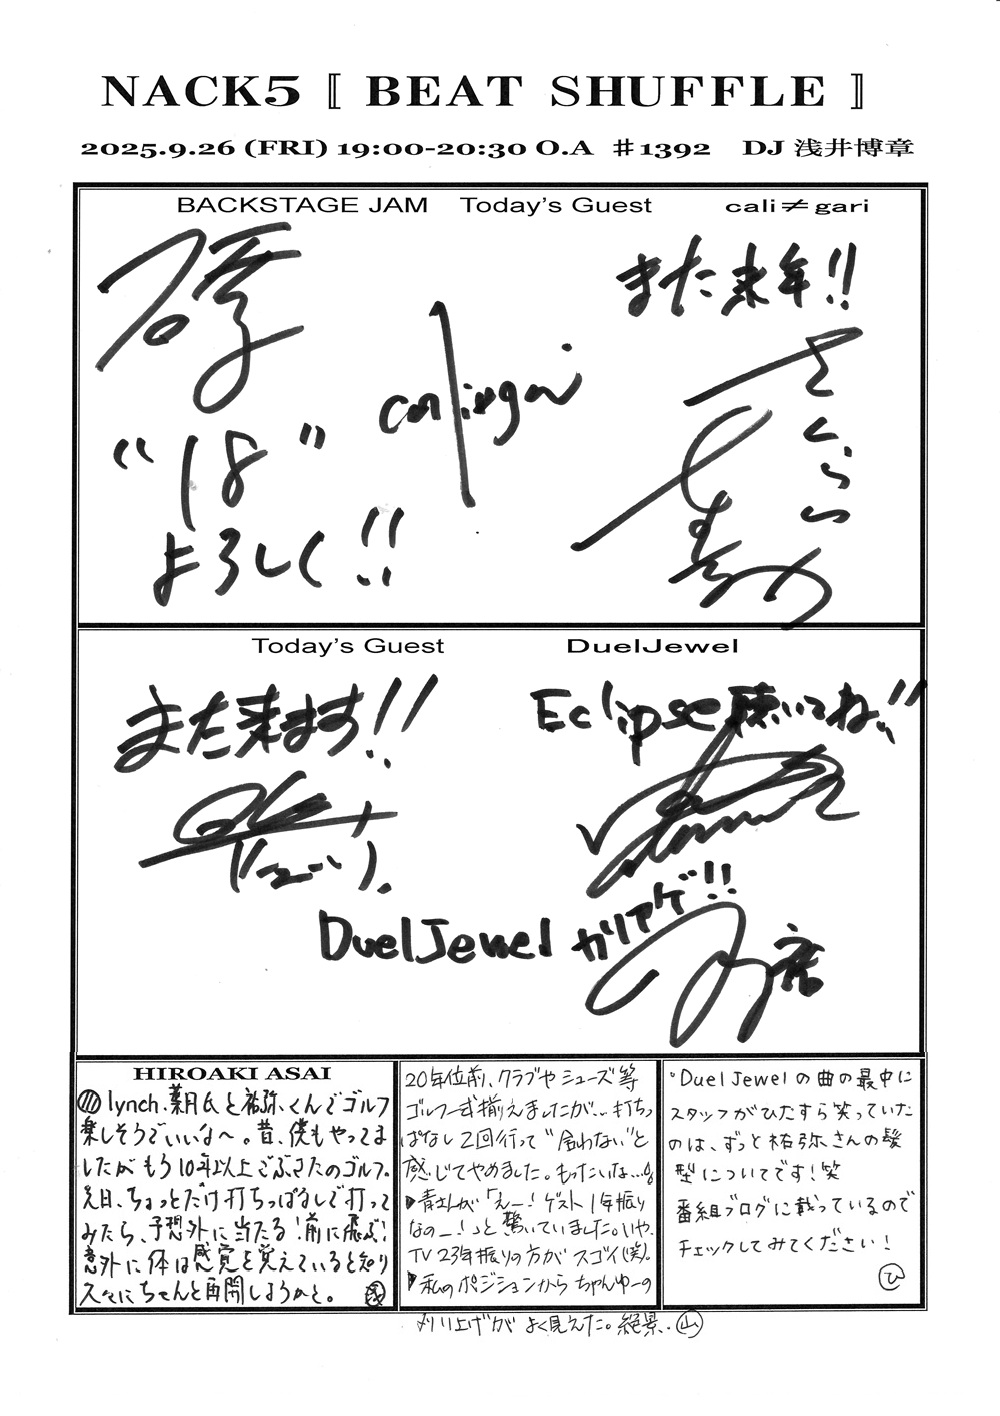 NACK5 〚 BEAT SHUFFLE 〛
2025.9.26 (FRI) 19:00-20:30 O.A ♯1392 DJ 浅井博章
BACKSTAGE JAM Today's Guest cali≠gari
また来年!!
cali≠gari
さくらい
青
"18"
よろしく!!
Today's Guest DuelJewel
また来ます!!
Eclipse聴いてね!!
DuelJewel カリアゲ!!
HIROAKI ASAI
lynch.葉月氏と祐弥.くんでゴルフ
楽しそうでいいな〜。昔、僕もやってま
したがもう10年以上ごぶさたのゴルフ。
先日、ちょっとだけ打ちっぱなしで打って
みたら、予想外に当たる!前に飛ぶ!
意外に体は感覚を覚えていると知り
久々にちゃんと再開しようかと。
20年位前、クラブやシューズ等
ゴルフ一式揃えましたが…打ちっ
ぱなし2回行って"合わない"と
感じてやめました。もったいな…。
青さんが「えー!ゲスト1年振り
なのー!」と驚いていました。いや、
TV 23年振りの方がスゴイ(笑)。
私のポジションから ちゃんゆーの
刈り上げが よく見えた。絶景. ㊤山
°DuelJewelの曲の最中に
スタッフがひたすら笑っていた
のは、ずっと祐弥さんの髪
型についてです!笑
番組ブログに載っているので
チェックしてみてください!
ひ